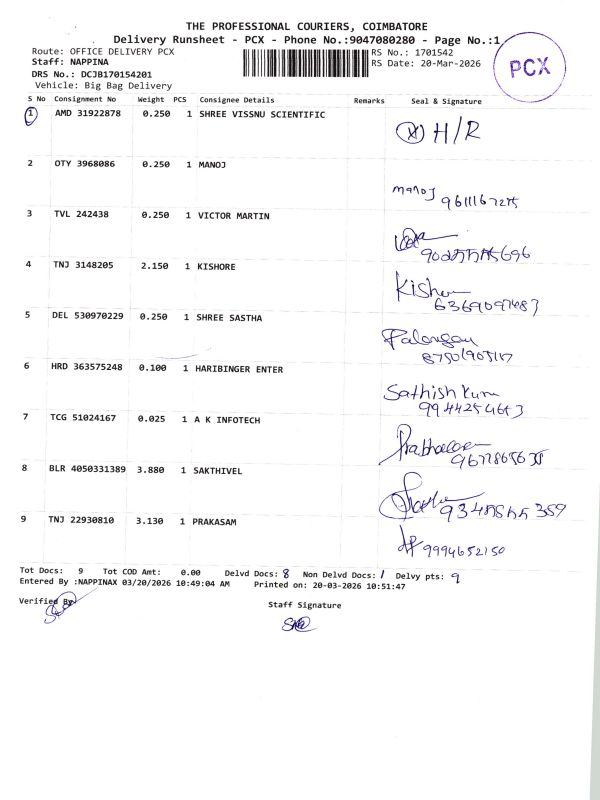 THE PROFESSIONAL COURIERS, COIMBATORE
Delivery Runsheet - PCX - Phone No.:9047080280 - Page No.:1
Route: OFFICE DELIVERY PCX
RS No.: 1701542
Staff: NAPPINA
RS Date: 20-Mar-2026
DRS No.: DCJB170154201
Vehicle: Big Bag Delivery
PCX
S No Consignment No Weight PCS Consignee Details Remarks Seal & Signature
1 AMD 31922878 0.250 1 SHREE VISSNU SCIENTIFIC
H/R
2 OTY 3968086 0.250 1 MANOJ
manoj
3 TVL 242438 0.250 1 VICTOR MARTIN
4 TNJ 3148205 2.150 1 KISHORE
5 DEL 530970229 0.250 1 SHREE SASTHA
6 HRD 363575248 0.100 1 HARIBINGER ENTER
Sathish Kum
7 TCG 51024167 0.025 1 A K INFOTECH
8 BLR 4050331389 3.880 1 SAKTHIVEL
9 TNJ 22930810 3.130 1 PRAKASAM
9994652150
Tot Docs: 9 Tot COD Amt: 0.00 Delvd Docs: 8 Non Delvd Docs: 1 Delvy pts: 9
Entered By :NAPPINAX 03/20/2026 10:49:04 AM Printed on: 20-03-2026 10:51:47
Verified By
Staff Signature